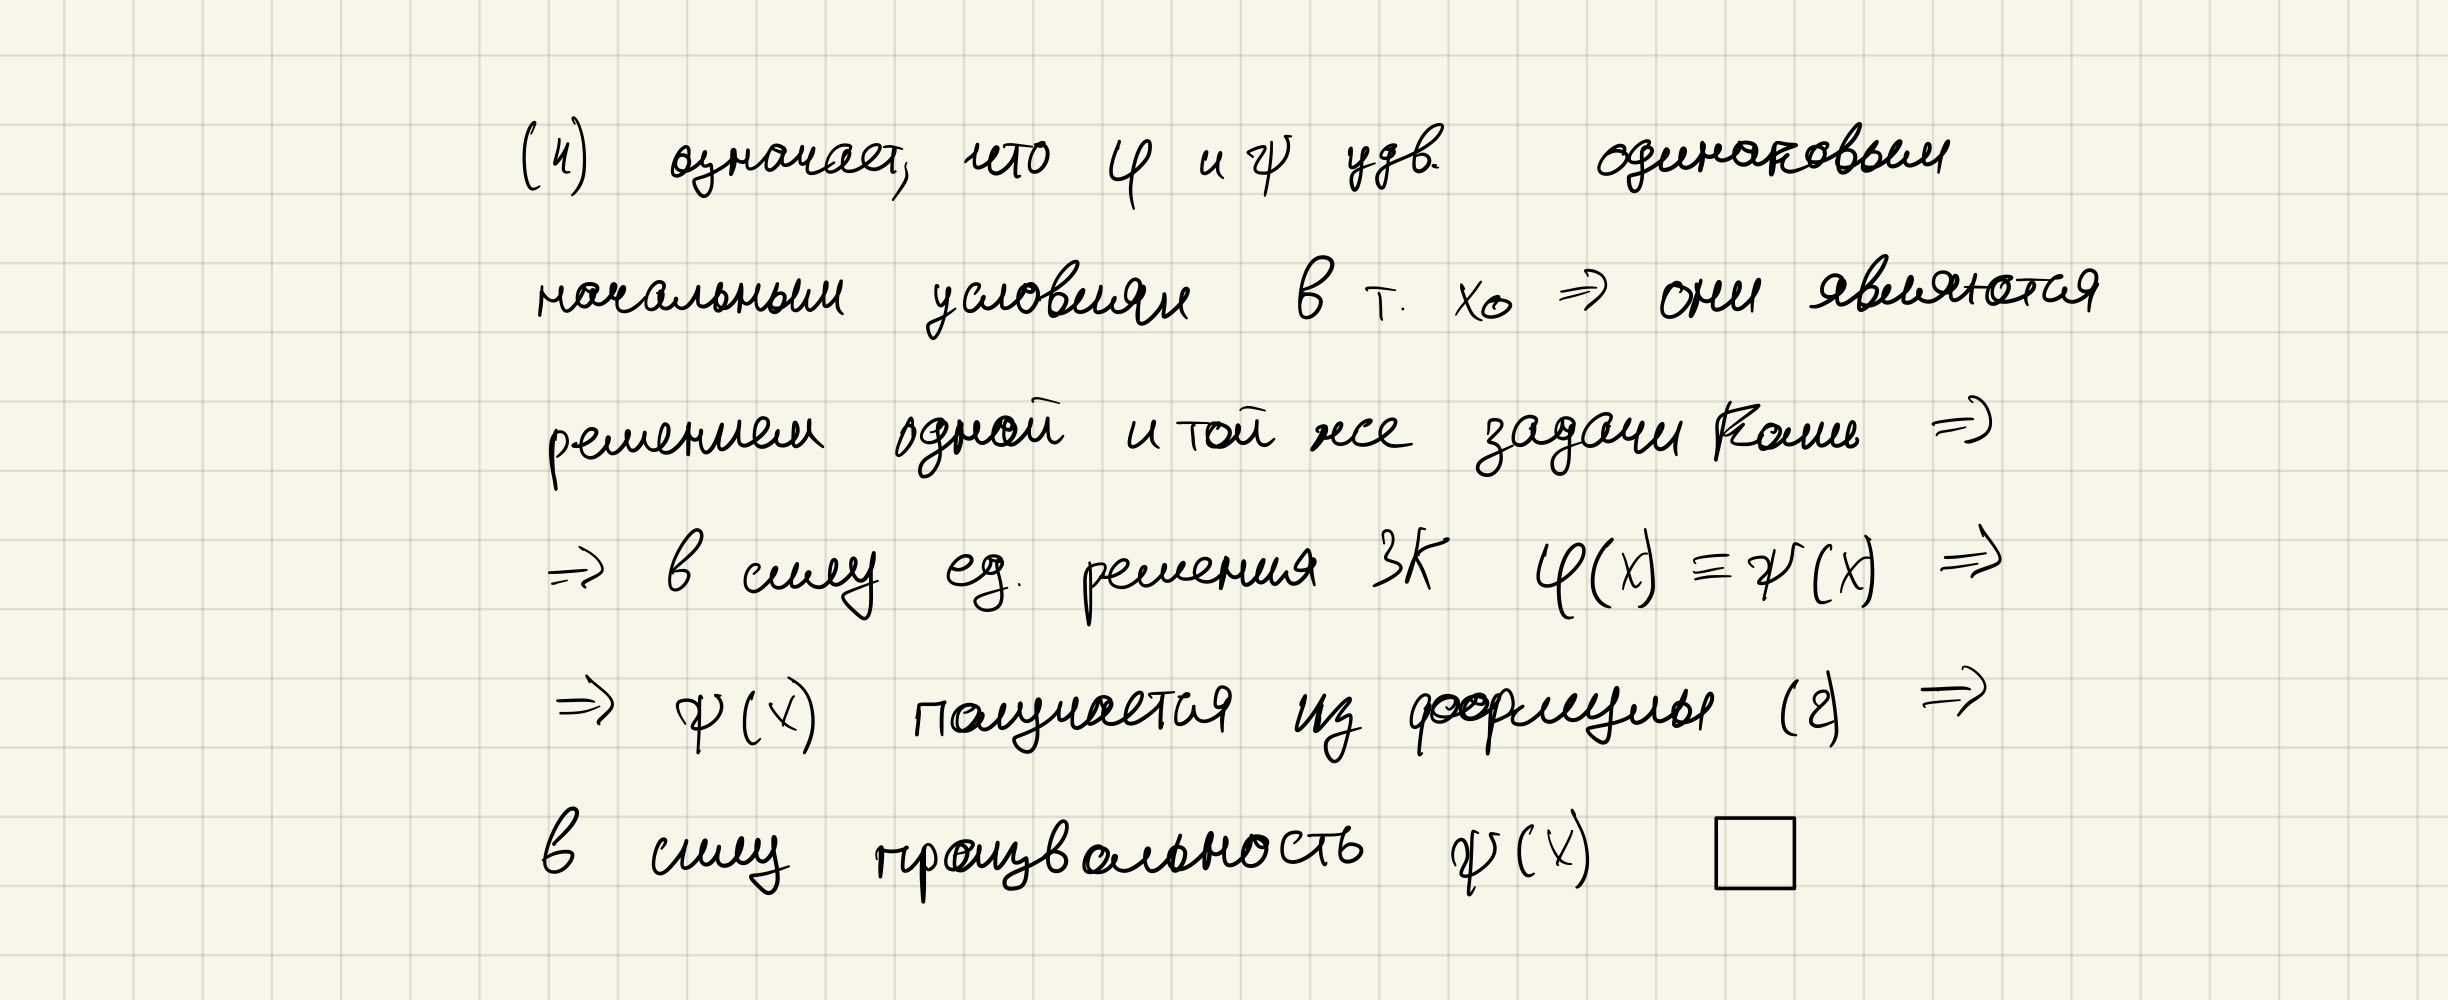 (4) означает, что φ и ψ удв. одинаковым
начальным условиям в т. x₀ ⇒ они являются
решением одной и той же задачи Коши ⇒
⇒ в силу ед. решения ЗК φ(x) ≡ ψ(x) ⇒
⇒ ψ(x) получается из формулы (2) ⇒
в силу произвольность ψ(x) □